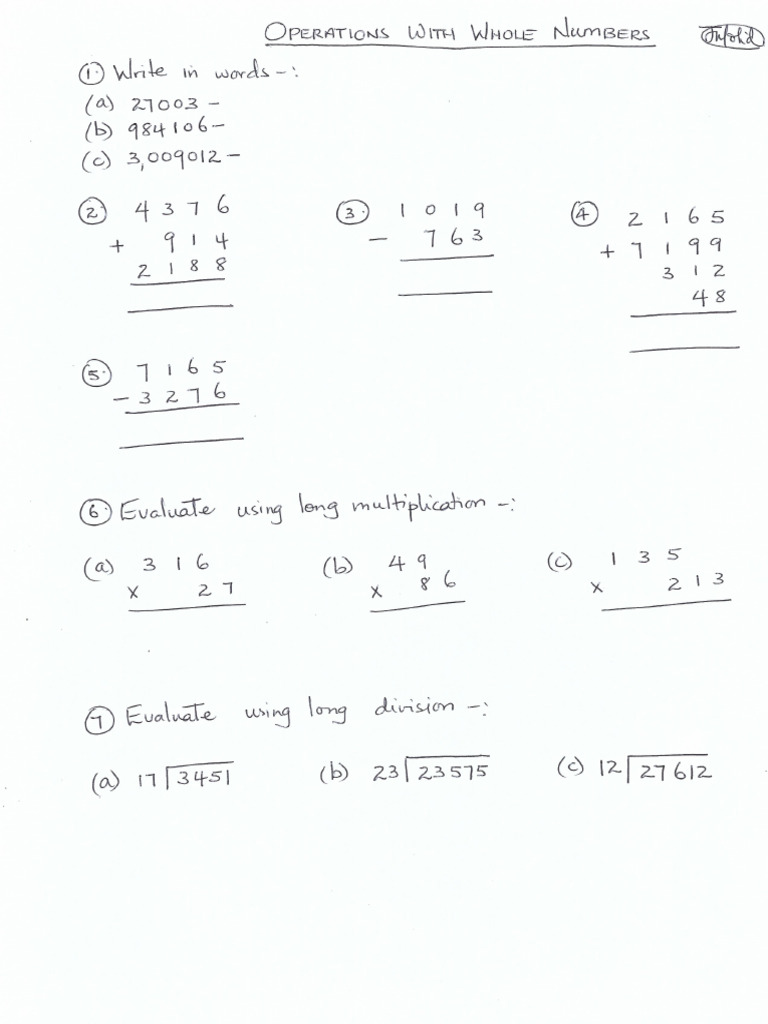 OPERATIONS WITH WHOLE NUMBERS
① Write in words -:
(a) 27003 -
(b) 984106 -
(c) 3,009012 -
② 4376
+ 914
2188
③ 1019
- 763
④ 2165
+ 7199
312
48
⑤ 7165
- 3276
⑥ Evaluate using long multiplication -:
(a) 316
x 27
(b) 49
x 86
(c) 135
x 213
⑦ Evaluate using long division -:
(a) 17 3451 (b) 23 23575 (c) 12 27612